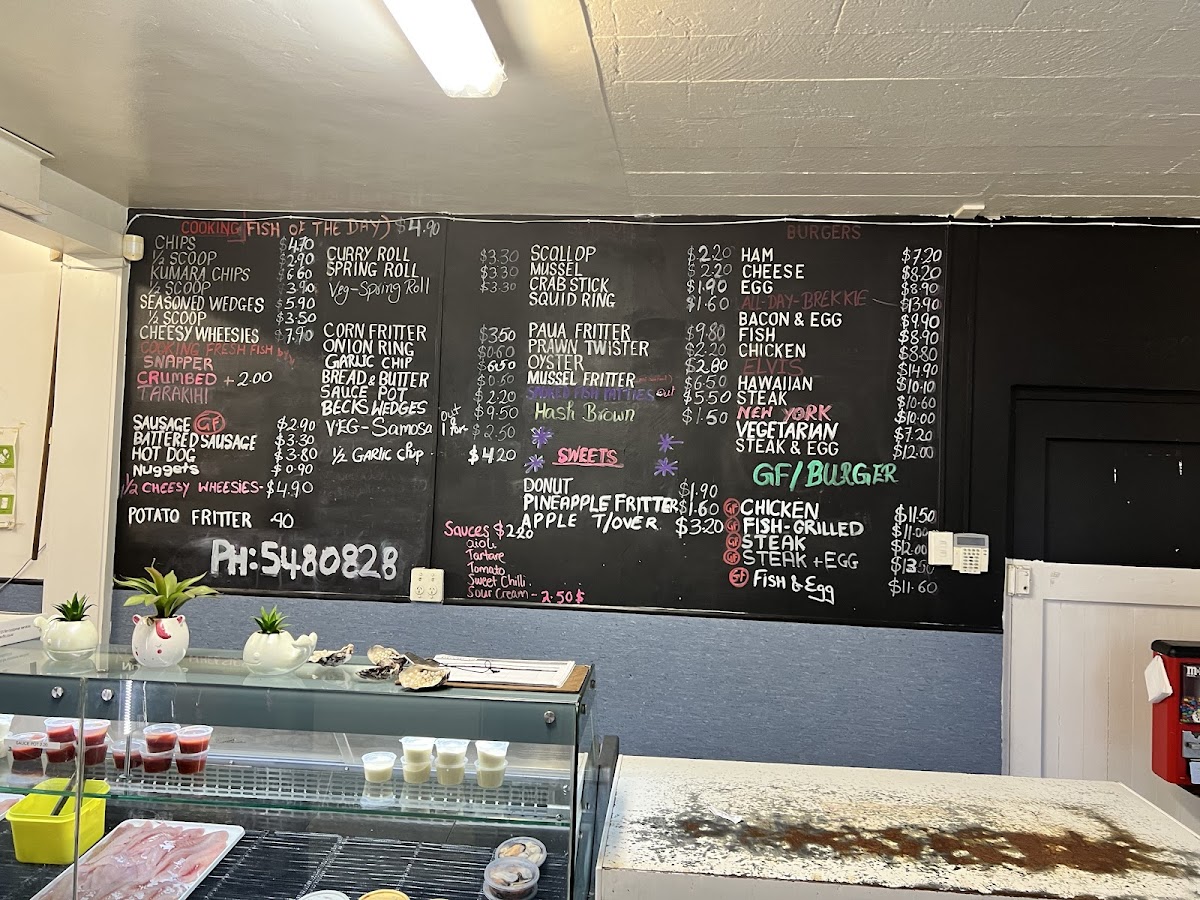 COOKING (FISH OF THE DAY) $4.90
CHIPS $4.70
½ SCOOP $2.90
KUMARA CHIPS $6.60
½ SCOOP $3.90
SEASONED WEDGES $5.90
½ SCOOP $3.50
CHEESY WHEESIES $7.90
COOKING FRESH FISH
SNAPPER
CRUMBED + 2.00
TARAKIHI
SAUSAGE GF $2.90
BATTERED SAUSAGE $3.30
HOT DOG $3.80
Nuggets $0.90
½ CHEESY WHEESIES - $4.90
POTATO FRITTER .90
PH: 5480828
CURRY ROLL $3.30
SPRING ROLL $3.30
Veg-Spring Roll $3.30
CORN FRITTER $3.50
ONION RING $0.60
GARLIC CHIP
BREAD & BUTTER
SAUCE POT $2.20
BECKS WEDGES $9.50
VEG-Samosa $2.50
½ GARLIC chip $4.20
Sauces $2.20
aioli
Tartare
Tomato
Sweet Chilli
Sour Cream - 2.50 $
SCOLLOP $2.20
MUSSEL $2.20
CRAB STICK $1.90
SQUID RING $1.60
PAUA FRITTER $9.80
PRAWN TWISTER $2.20
OYSTER $2.80
MUSSEL FRITTER $6.50
SMOKED FISH PATTIES out $5.50
Hash Brown $1.50
SWEETS
DONUT $1.90
PINEAPPLE FRITTER $1.60
APPLE T/OVER $3.20
BURGERS
HAM $7.20
CHEESE $8.20
EGG $8.90
ALL-DAY-BREKKIE $13.90
BACON & EGG $9.90
FISH $8.90
CHICKEN $8.80
ELVIS $14.90
HAWAIIAN $10.10
STEAK $10.60
NEW YORK $10.00
VEGETARIAN $7.20
STEAK & EGG $12.00
GF/BURGER
GF CHICKEN $11.50
GF FISH-GRILLED $11.00
GF STEAK $12.00
GF STEAK + EGG $13.50
GF Fish & Egg $11.60